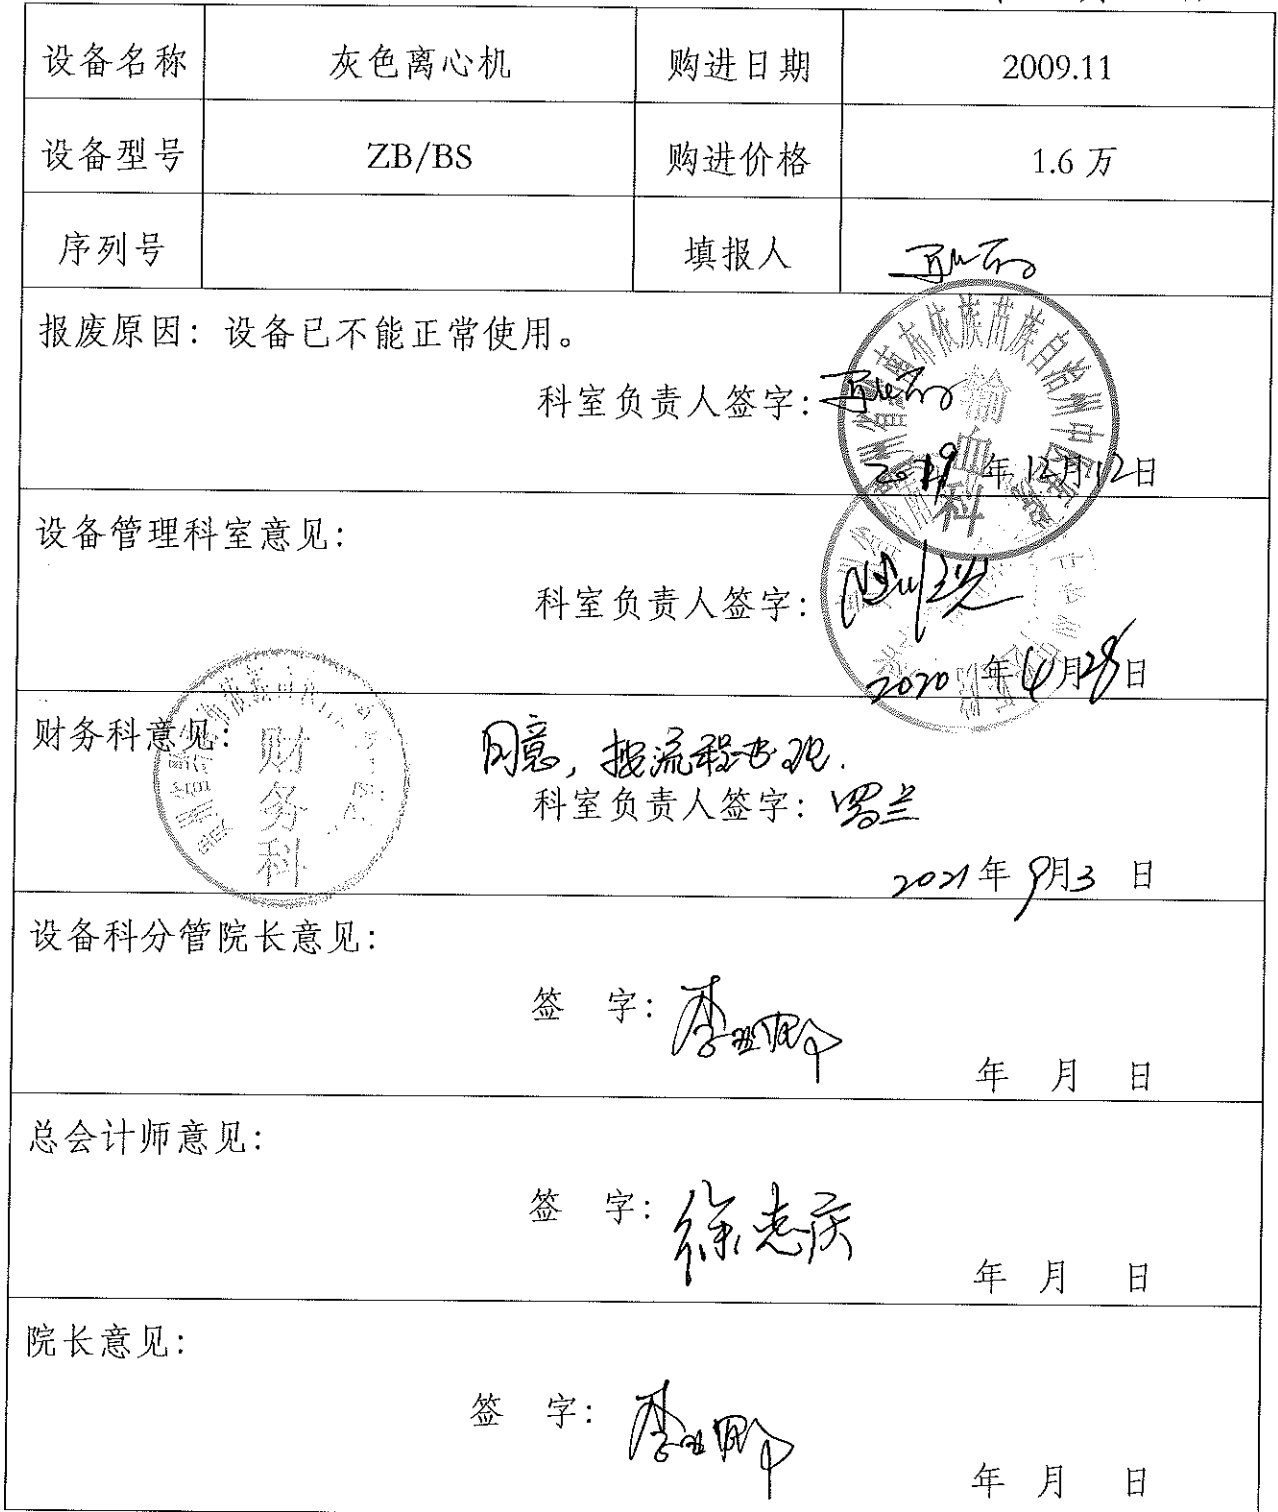 设备名称 灰色离心机 购进日期 2009.11
设备型号 ZB/BS 购进价格 1.6 万
序列号 填报人
报废原因：设备已不能正常使用。
科室负责人签字：
输血科
2019 年 12月 12日
设备管理科室意见：
科室负责人签字：
2020 年 4月 28日
财务科意见：
财务科
同意，按流程办理.
科室负责人签字：罗兰
2021 年 9月 3 日
设备科分管院长意见：
签 字：
年 月 日
总会计师意见：
签 字：徐志庆
年 月 日
院长意见：
签 字：
年 月 日